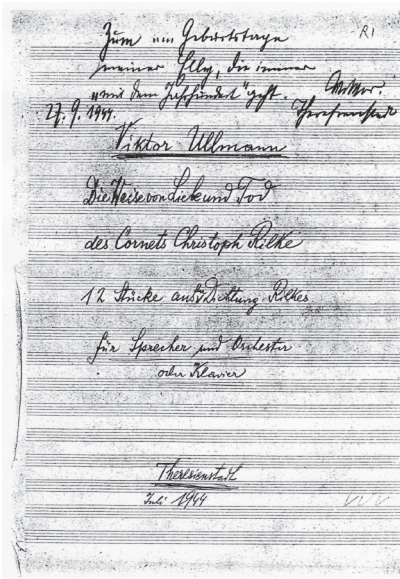 R1
Zum Geburtstage
meiner Elly, die immer
"mit dem geht.
27. 9. 1944. Theresienstadt
Viktor Ullmann
Die Weise von Liebe und Tod
des Cornets Christoph Rilke
12 Stücke aus der Dichtung Rilkes
für Sprecher und Orchester
oder Klavier
Theresienstadt
Juli 1944